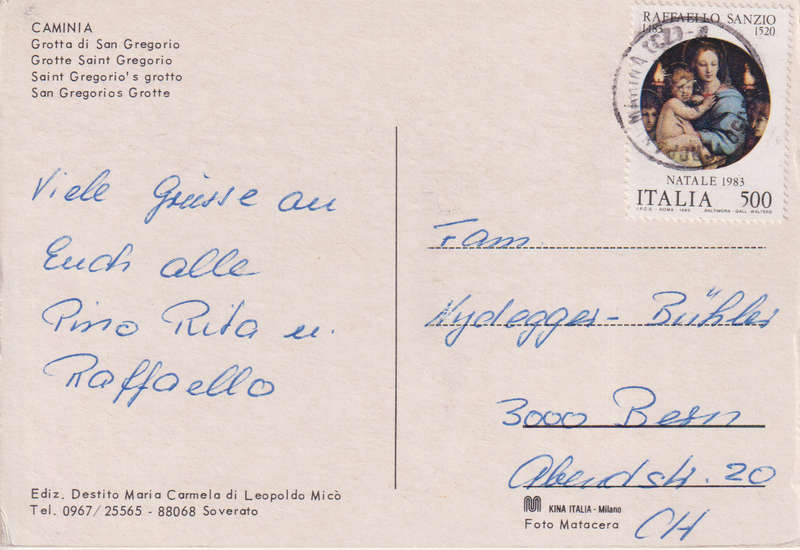 CAMINIA
Grotta di San Gregorio
Grotte Saint Gregorio
Saint Gregorio's grotto
San Gregorios Grotte
RAFFAELLO SANZIO
1483 1520
NATALE 1983
ITALIA 500
I.P.Z.S. - ROMA - 1983 BALTIMORA - GALL. WALTERS
Viele Grüsse an
Euch alle
Pino Rita u.
Raffaello
Fam.
Nydegger - Bühler
3000 Bern
Abendstr. 20
CH
Ediz. Destito Maria Carmela di Leopoldo Micò
Tel. 0967/25565 - 88068 Soverato
KINA ITALIA - Milano
Foto Matacera